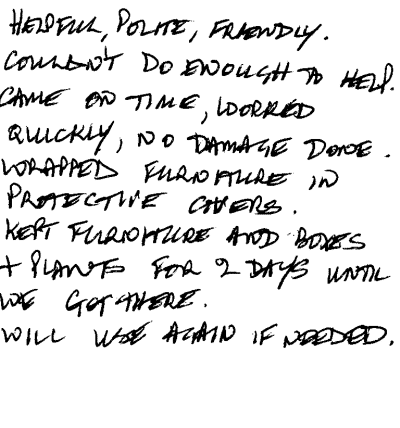 HELPFUL, POLITE, FRIENDLY.
COULDN'T DO ENOUGH TO HELP.
CAME ON TIME, WORKED
QUICKLY, NO DAMAGE DONE.
WRAPPED FURNITURE IN
PROTECTIVE COVERS.
KEPT FURNITURE AND BOXES
+ PLANTS FOR 2 DAYS UNTIL
WE GOT THERE.
WILL USE AGAIN IF NEEDED.